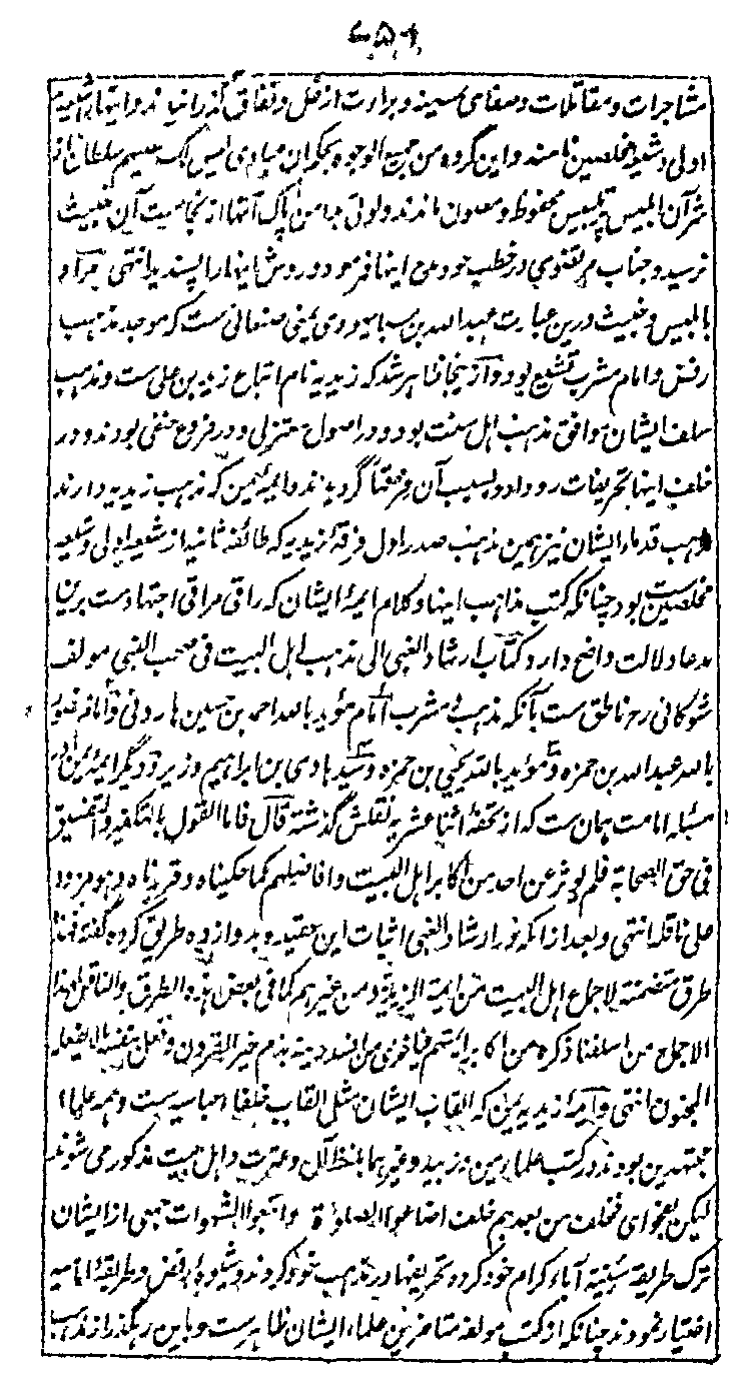 ۶۵۹
مشاجرات و مقاتلات و صفای سینه و برارت از غل و نفاق گذرانیدند و اینها را شیعه
اولی و شیعه مخلصین نامند و این گروه من جمیع الوجوه بحکم ان عبادی لیس لک علیهم سلطان از
شر آن ابلیس پر تلبیس محفوظ و مصون ماندند و لوثی بدامن پاک آنها از نجاست آن خبیث
نرسید و جناب مرتضوی در خطب خود مدح اینها فرمود و روش اینها را پسندید انتهی مراد
بابلیس و خبیث درین عبارت عبد الله بن سبا یهودی یمنی صنعانی ست که موجد مذهب
رفض و امام مشرب تشیع بود و از ینجا ظاهر شد که زیدیه نام اتباع زید بن علی ست و مذهب
سلف ایشان موافق مذهب اهل سنت بود و در اصول معتزلی و در فروع حنفی بودند و در
خلف اینها تحریفات رو داد و بسبب آن فرقها گردیدند و ایمه یمن که مذهب زیدیه دارند
مذهب قدماء ایشان نیز همین مذهب صدر اول فرقه زیدیه که طائفه ثانیه از شیعه اولی و شیعه
مخلصین ست بود چنانکه کتب مذاهب اینها و کلام ایمه ایشان که راقی مراقی اجتهادست برین
مدعا دلالت واضح دارد و کتاب ارشاد الغبی الی مذهب اهل البیت فی صحب النبی مولف
شوکانی رح ناطق ست بآنکه مذهب و مشرب امام مؤید بالله احمد بن حسین هارونی و امام منصور
بالله عبد الله بن حمزه و مؤید بالله یحیی بن حمزه و سید هادی بن ابراهیم وزیر و دیگر ایمه یمن در
مسئله امامت همان ست که از تحفه اثنا عشریه نقلش گذشته قال فاما القول بالتکفیر و التفسیق
فی حق الصحابة فلم یوثر عن احد من اکابر اهل البیت و افاضلهم کما حکیناه و قررناه و هو مردود
علی ناقله انتهی و بعد از آنکه در ارشاد الغبی اثبات این عقیده بدوازده طریق کرده گفته فهذه
طرق متضمنة لاجماع اهل البیت من ایمة الزیدیة و من غیرهم کما فی بعض هذه الطرق و الناقل لهذا
الاجماع من اسلفنا ذکره من اکابر ایمتهم فیا من افسد دینه بذم خیر القرون و فعل بنفسه ما لا یفعله
المجنون انتهی و ایمه زیدیه یمن که القاب ایشان مثل القاب خلفاء عباسیه ست و همه علماء
مجتهدین بودند در کتب علماء یمن و زبید و غیرهما بلفظ آل و عترت و اهل بیت مذکور می شوند
لیکن بفحوای فخلف من بعدهم خلف اضاعوا الصلوة و اتبعوا الشهوات جمعی از ایشان
ترک طریقه سنیه آباء کرام خود کرده تحریفها در مذهب خود کردند و شیوه رفض و طریقه امامیه
اختیار نمودند چنانکه از کتب مولفه متاخرین علماء ایشان ظاهرست و باین رهگذر از مذهب